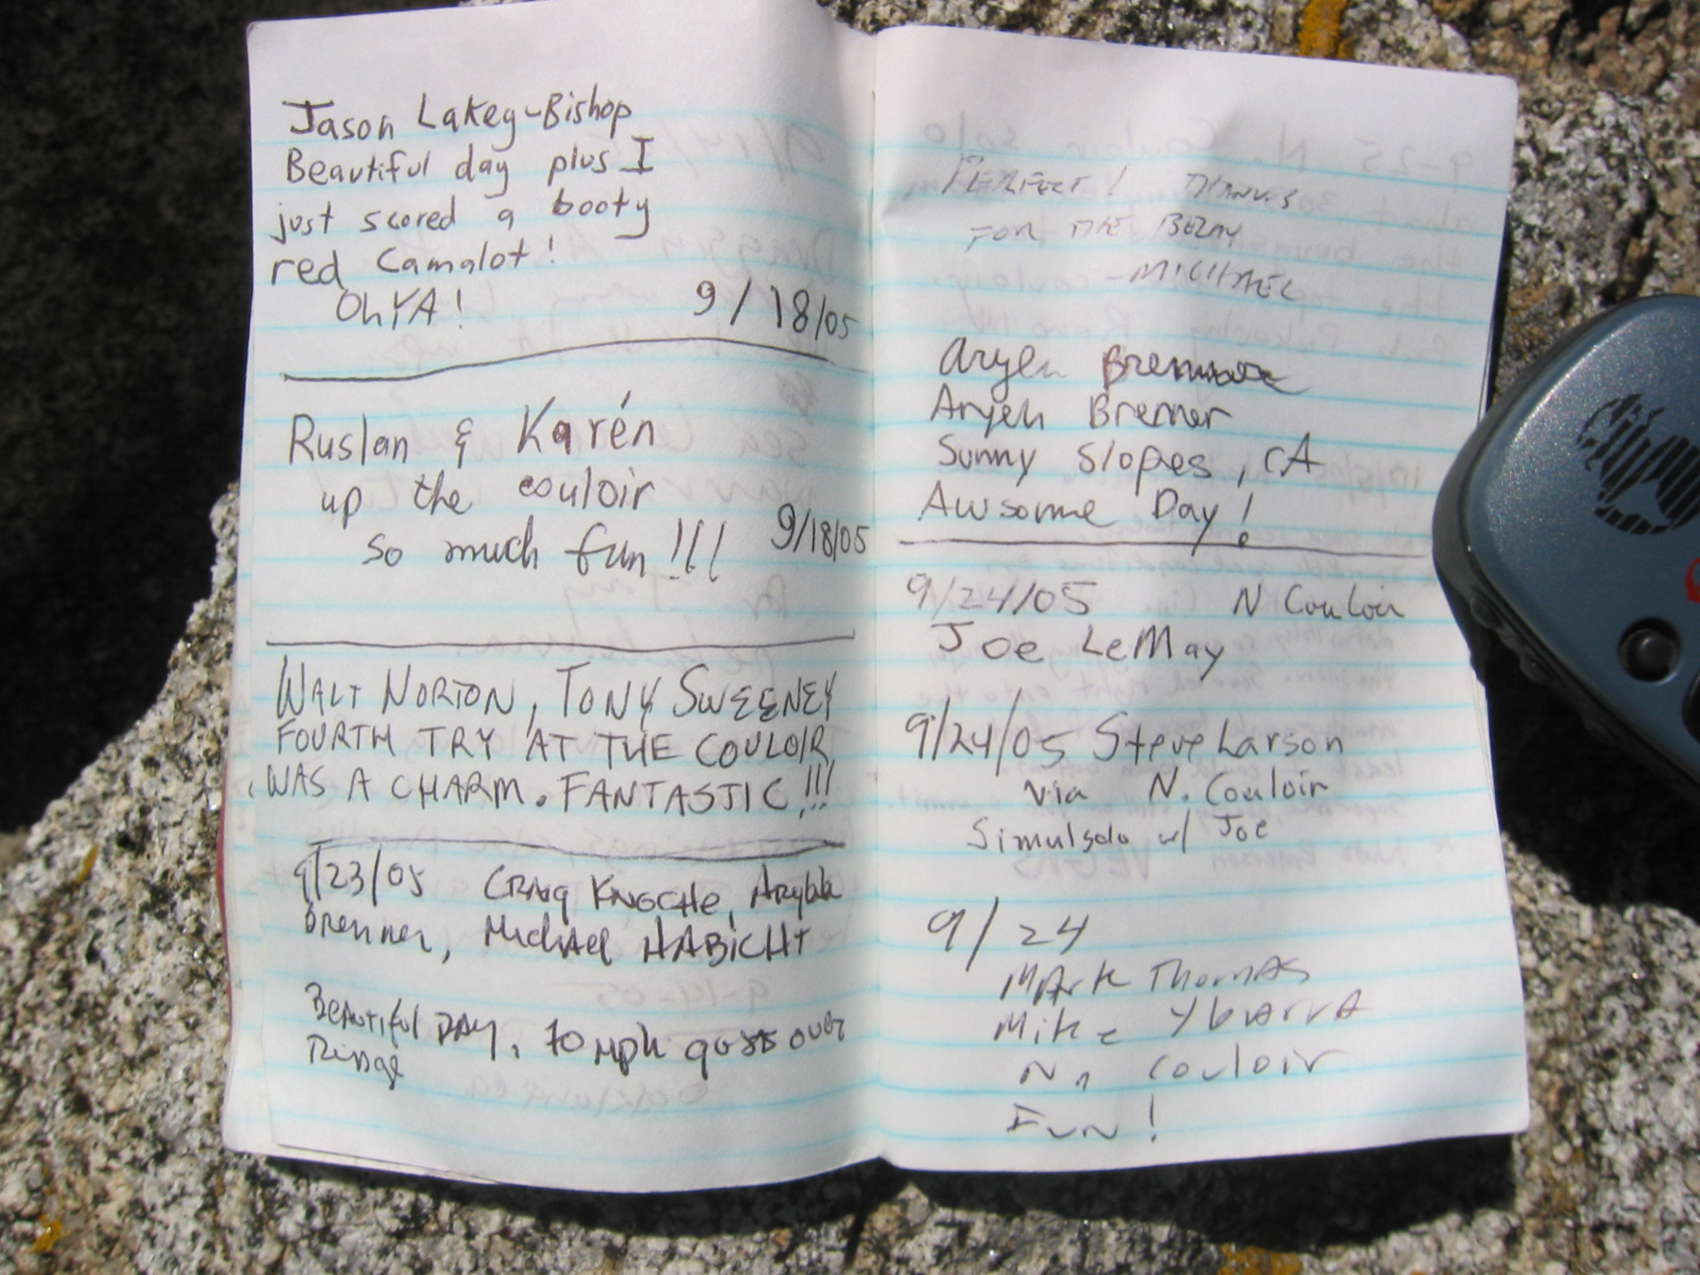 Jason Lakey-Bishop
Beautiful day plus I
just scored a booty
red Camalot!
Oh YA! 9/18/05
Ruslan & Karén
up the couloir
so much fun!!! 9/18/05
WALT NORTON, TONY SWEENEY
FOURTH TRY AT THE COULOIR
WAS A CHARM. FANTASTIC!!!
9/23/05 CRAIG KNOCHE,
Brenner, Michael HABICHT
Beautiful DAY, 70 mph gusts over
Ridge
PERFECT! THANKS
FOR THE BELAY
-MICHAEL
Aryeh
Aryeh Brenner
Sunny Slopes, CA
Awsome Day!
9/24/05 N Couloir
Joe LeMay
9/24/05 Steve Larson
via N. Couloir
Simulsolo w/ Joe
9/24
Mark Thomas
Mike Ybarra
N. Couloir
Fun!